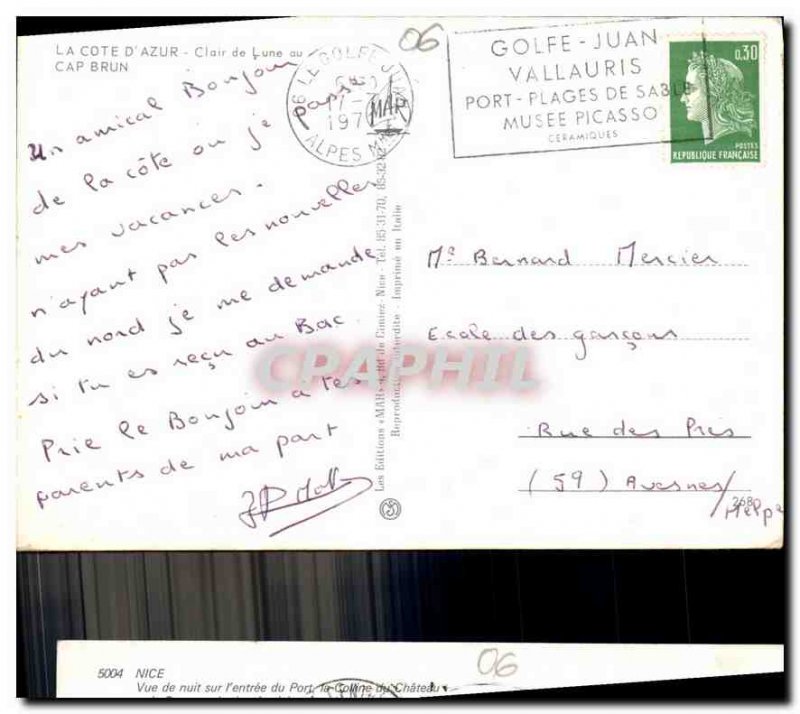 LA COTE D'AZUR - Clair de Lune au
CAP BRUN
Un amical Bonjour
de la côte où je passe
mes vacances.
n'ayant pas les nouvelles
du nord je me demande
si tu es reçu au Bac.
Prie le Bonjour à tes
parents de ma part
06
LE GOLFE JUAN
197
ALPES MAR
GOLFE - JUAN
VALLAURIS
PORT - PLAGES DE SABLE
MUSEE PICASSO
CERAMIQUES
0,30
POSTES
REPUBLIQUE FRANÇAISE
Les Editions «MAR», Bd de Cimiez - Nice - Tél. 85-31-70, 85-32-82
Reproduction interdite - Imprimé en Italie
Mr Bernard Mercier
Ecole des garçons
Rue des Prés
(59) Avesnes/Helpe
268
CPAPHIL
5004 NICE
Vue de nuit sur l'entrée du Port, la Colline du Château
06